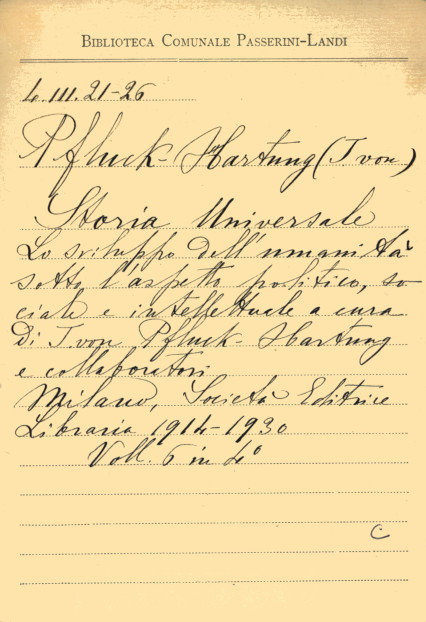 BIBLIOTECA COMUNALE PASSERINI-LANDI
L. III. 21-26
Pfluck-Hartung (J. von)
Storia Universale
Lo sviluppo dell'umanità
sotto l'aspetto politico, so
ciale e intellettuale a cura
di J. von Pfluck-Hartung
e collaboratori
Milano, Società Editrice
Libraria 1914-1930
Voll. 6 in 4°
C.